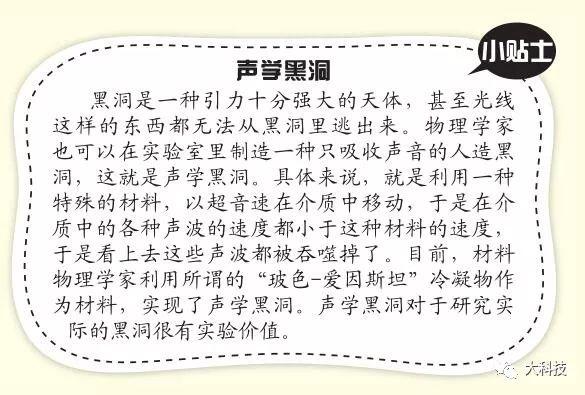 小贴士
声学黑洞
黑洞是一种引力十分强大的天体，甚至光线
这样的东西都无法从黑洞里逃出来。物理学家
也可以在实验室里制造一种只吸收声音的人造黑
洞，这就是声学黑洞。具体来说，就是利用一种
特殊的材料，以超音速在介质中移动，于是在介
质中的各种声波的速度都小于这种材料的速度，
于是看上去这些声波都被吞噬掉了。目前，材料
物理学家利用所谓的“玻色-爱因斯坦”冷凝物作
为材料，实现了声学黑洞。声学黑洞对于研究实
际的黑洞很有实验价值。
大科技